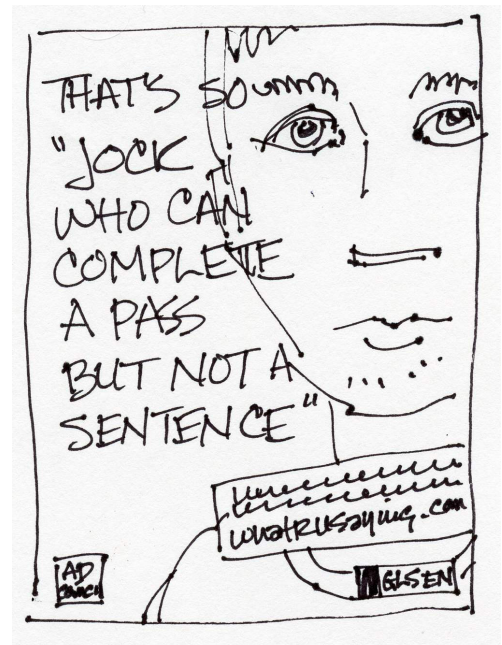 THAT'S SO
"JOCK
WHO CAN
COMPLETE
A PASS
BUT NOT A
SENTENCE"
whatrusaying.com
AD
Council
GLSEN